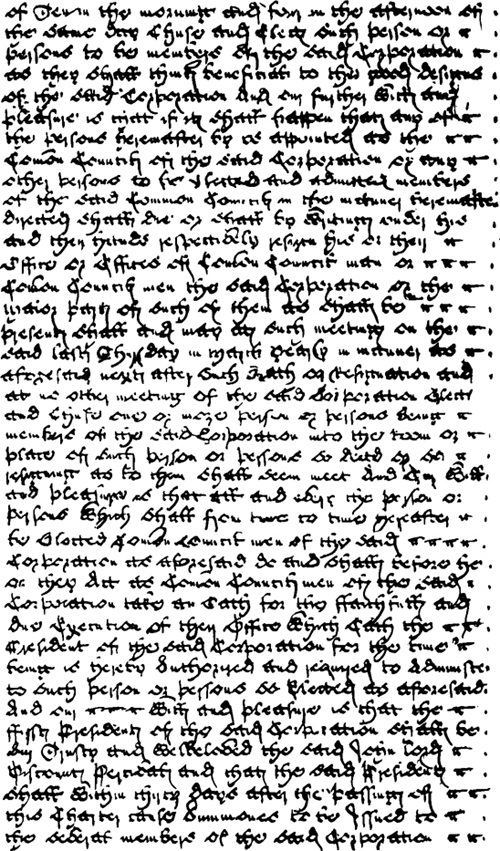 of Ten in the morning and four in the afternoon of
the same day Chuse and Elect such person or
persons to be members of the said Corporation
as they shall think beneficial to the good designs
of the said Corporation And our further Will and
pleasure is that if it shall happen that any of
the persons hereafter by us appointed as the
Comon Council of the said Corporation or any
other persons to be Elected and admitted members
of the said Common Council in the manner hereafter
directed shall die or shall by Writing under his
and their hands respectively resign his or their
Office or Offices of Comon Council man or
Comon Council men the said Corporation or the
major part of such of them as shall be
present shall and may at such meeting on the
said last Thirsday in March Yearly in manner as
aforesaid next after such Death or Resignation and
at no other meeting of the said Corporation Elect
and Chuse one or more person or persons being
members of the said Corporation into the room or
place of such person or persons so dead or so
resigning as to them shall seem meet And Our Will
and pleasure is that all and every the person or
persons Which shall from time to time hereafter
be Elected Comon Council men of the said
Corporation as aforesaid do and shall before he
or they Act as Comon Council men of the said
Corporation take an Oath for the ffaithfull and
due Execution of their Office Which Oath the
President of the said Corporation for the time
being is hereby Authorized and required to Administer
to such person or persons so Elected as aforesaid
And our Will and pleasure is that the
ffirst President of the said Corporation shall be
our Trusty and Welbeloved the said John Lord
Viscount Percivall and that the said President
shall Within thirty days after the Passing of
this Charter cause Summons to be Issued to
the several members of the said Corporation